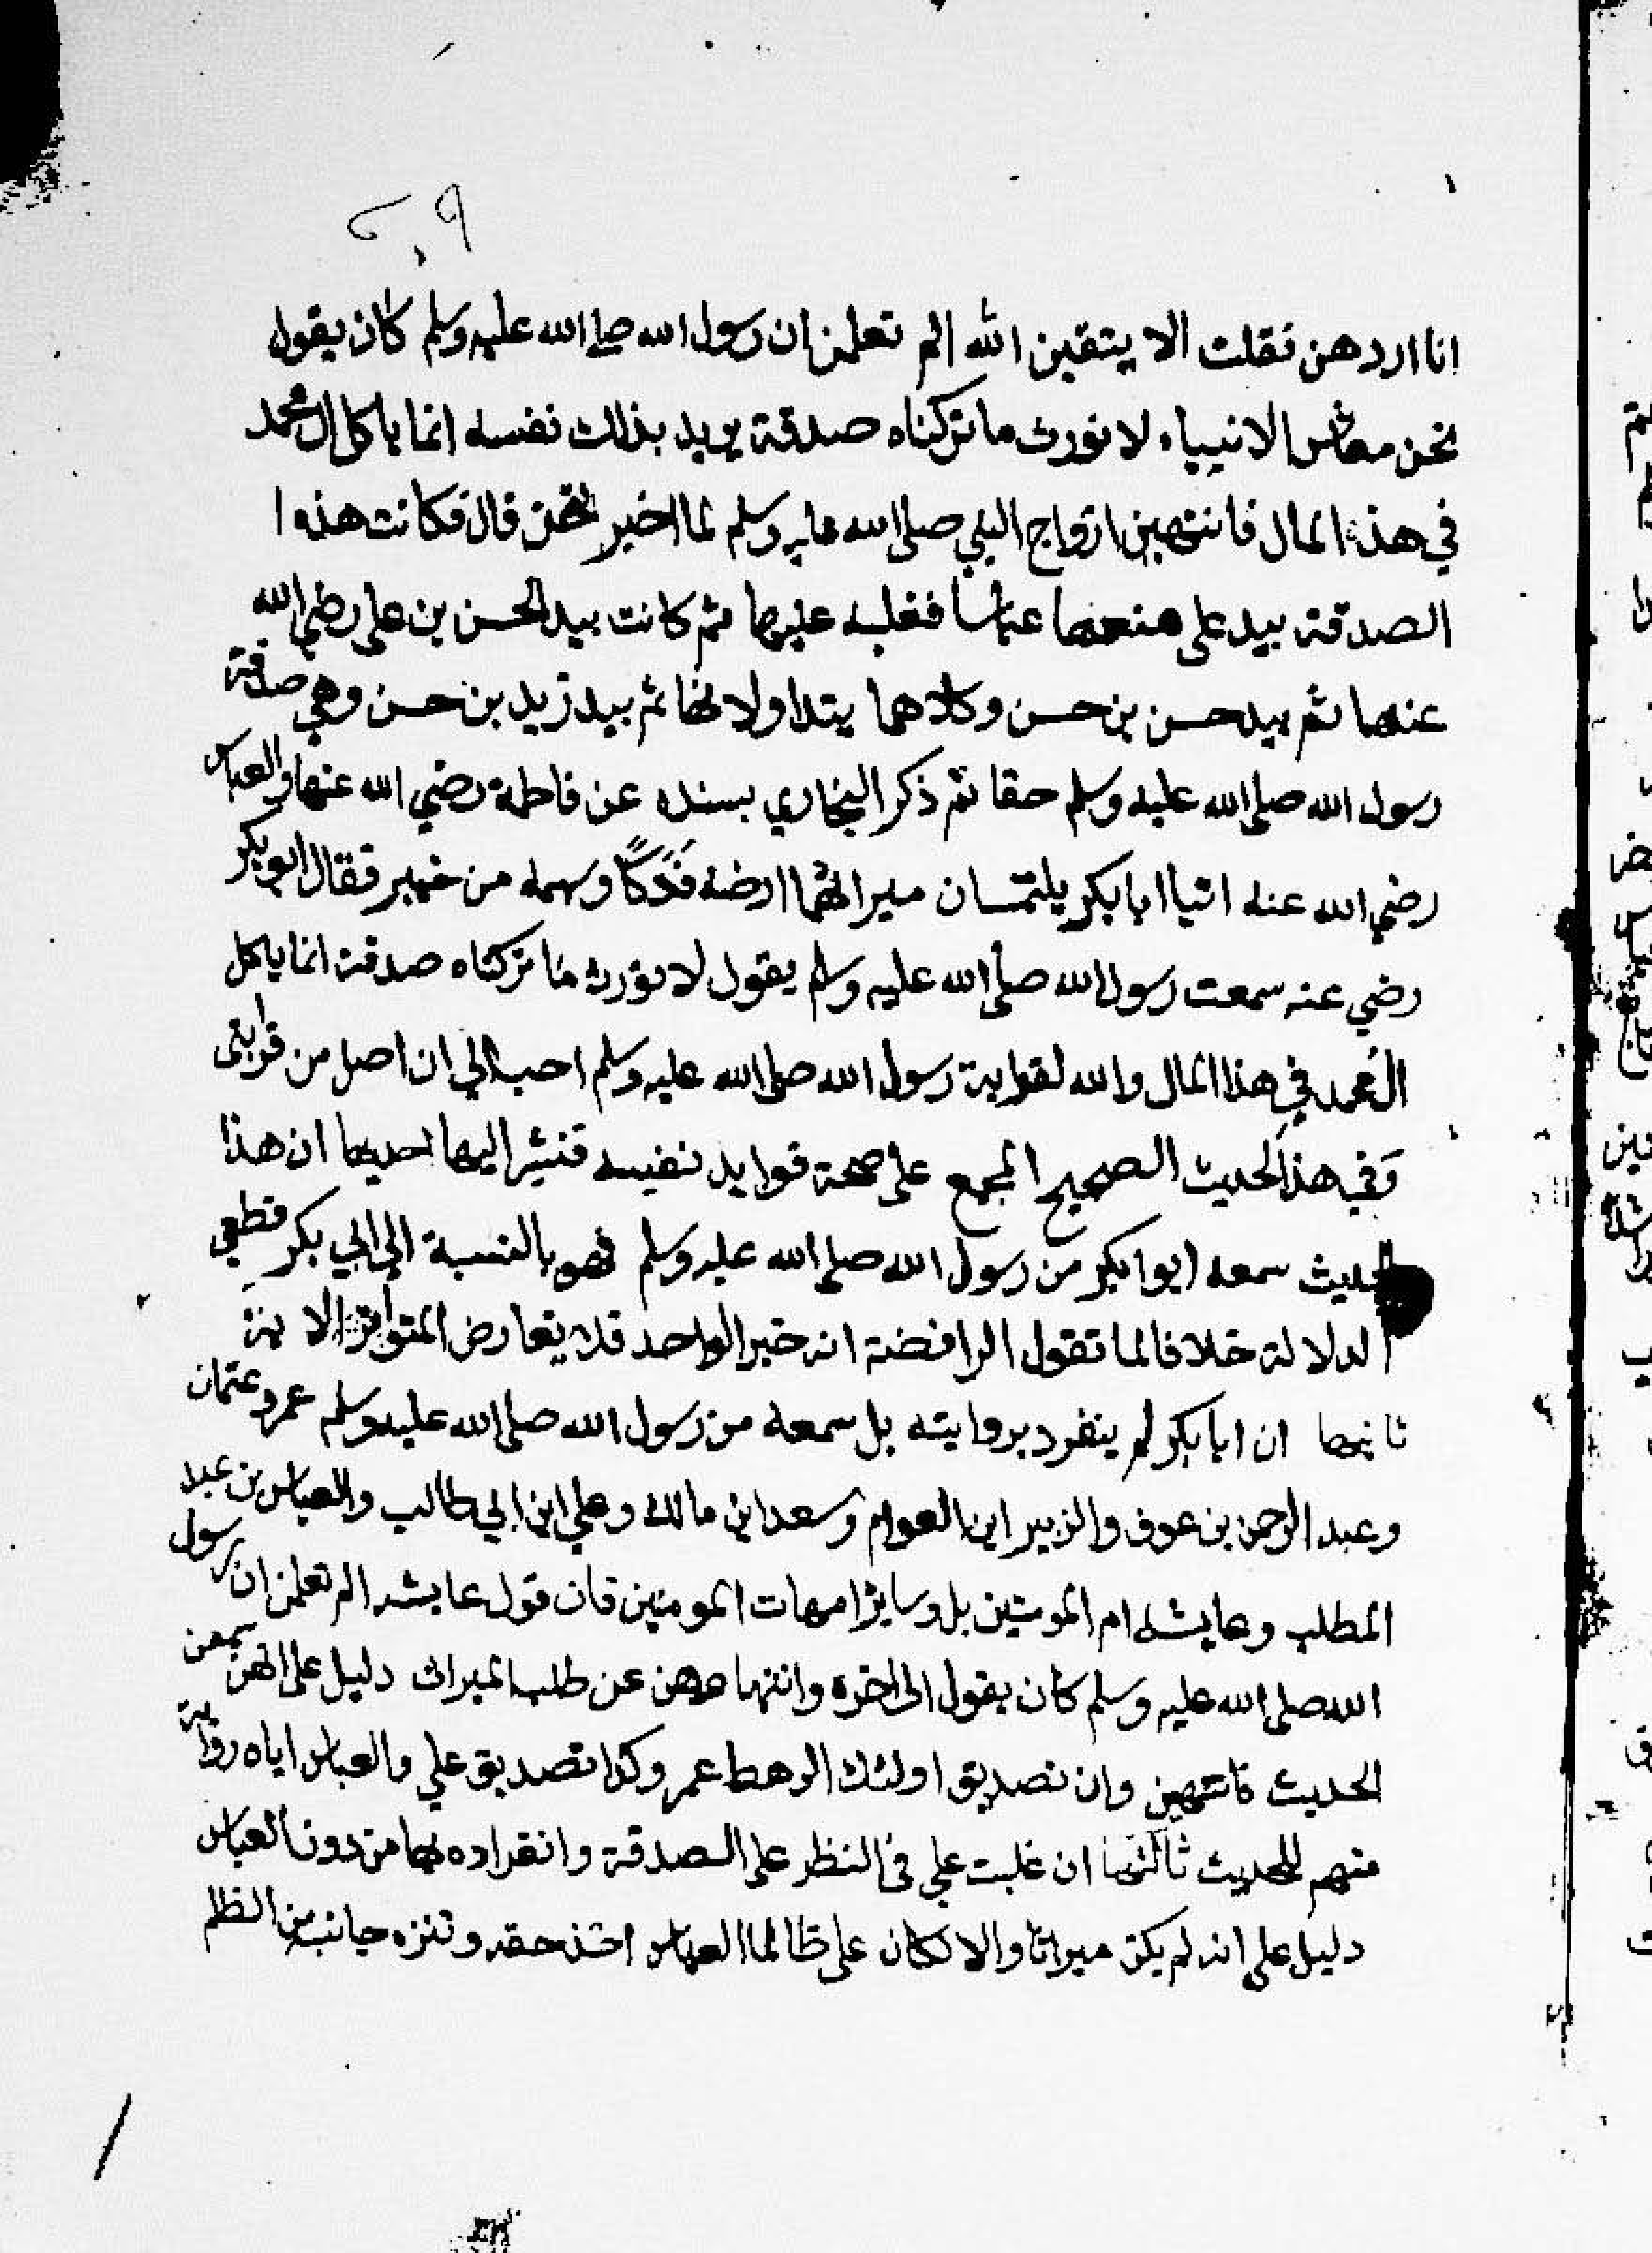 ٢٠٩
انا اردهن فقلت الا يتقين الله الم تعلمن ان رسول الله صلى الله عليه وسلم كان يقول
نحن معاشر الانبياء لا نورث ما تركناه صدقة يريد بذلك نفسه انما ياكل ال محمد
في هذا المال فانتهين ازواج النبي صلى الله عليه وسلم لما اخبرتهن قال فكانت هذه ا
الصدقة بيد على منعها عباسا فغلبه عليها ثم كانت بيد الحسن بن على رضي الله
عنهما ثم بيد حسن بن حسن وكلاهما يتداولانها ثم بيد زيد بن حسن وهي صدقة
رسول الله صلى الله عليه وسلم حقا ثم ذكر البخاري بسنده عن فاطمة رضي الله عنها والعباس
رضي الله عنه اتيا ابا بكر يلتمسان ميراثهما ارضه فدكًا وسهمه من خيبر فقال ابو بكر
رضي عنه سمعت رسول الله صلى الله عليه وسلم يقول لا نورث ما تركناه صدقة انما ياكل
ال محمد في هذا المال والله لقرابة رسول الله صلى الله عليه وسلم احب الي ان اصل من قرابتى
وفي هذا الحديث الصحيح المجمع على صحة فوايد نفيسه فنشير اليها احديها ان هذا
الحديث سمعه ابوا بكر من رسول الله صلى الله عليه وسلم فهو بالنسبة الى ابي بكر قطعي
الدلالة خلافا لما تقول الرافضة انه خبر الواحد فلا يعارض المتواتر الاية
ثانيها ان ابا بكر لم ينفرد بروايته بل سمعه من رسول الله صلى الله عليه وسلم عمر وعثمان
وعبد الرحمن بن عوف والزبير ابن العوام وسعد ابن مالك وعلي ابن ابي طالب والعباس بن عبد
المطلب وعايشه ام المومنين بل وساير امهات المومنين فان قول عايشه الم تعلمن ان رسول
الله صلى الله عليه وسلم كان يقول الى اخره وانتهاءهن عن طلب الميراث دليل على انهن سمعن
الحديث فانتهين وان تصديق اولئك الرهط عمر وكذا تصديق علي والعباس اياه رواية
منهم للحديث ثالثها ان غلبت علي في النظر على الصدقة وانفراده بها من دون العباس
دليل على انه لم يكن ميراثا والا لكان على ظالما العباس اخذ حقه وتنزه جانبه من الظلم